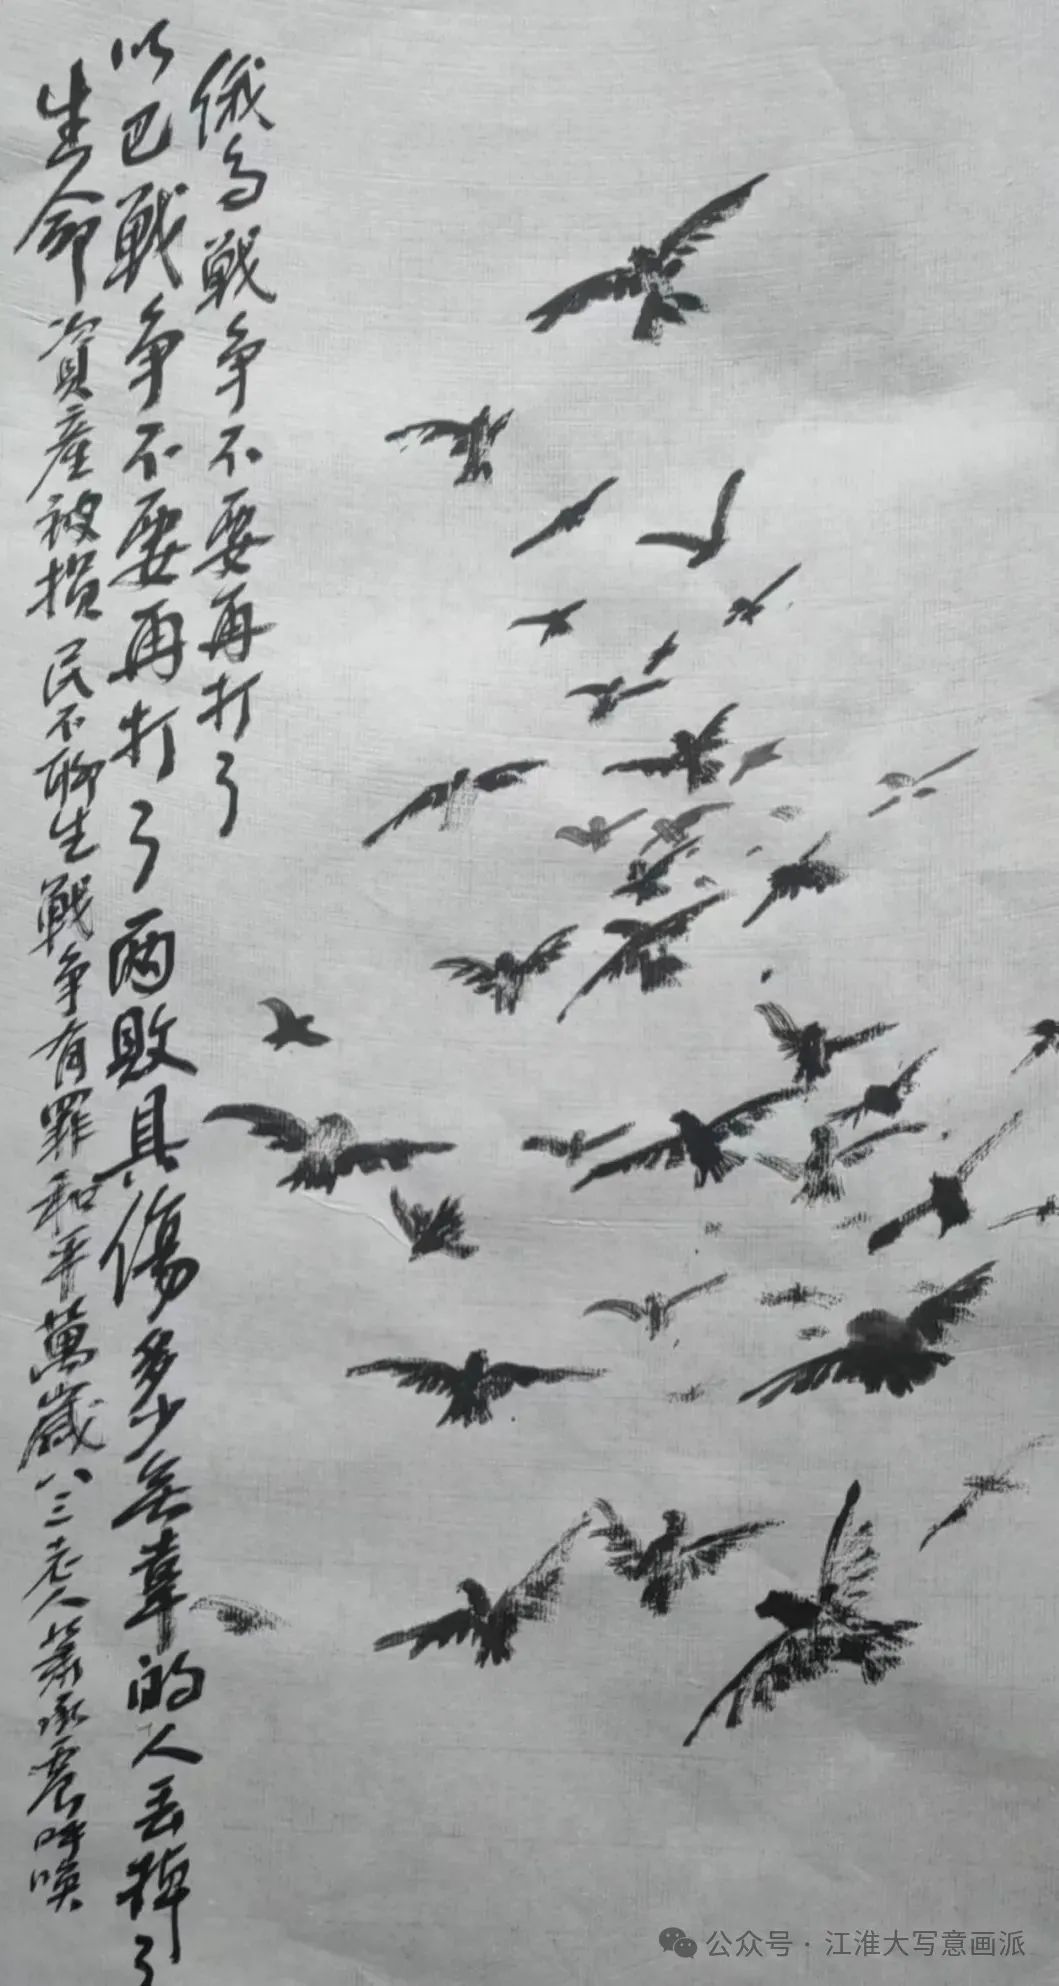 俄乌戰争不要再打了
以巴戰争不要再打了两敗具傷多少无辜的人丟掉了
生命資產被损民不聊生戰争有罪和平萬歲八三老人萧承震呼唤
公众号·江淮大写意画派